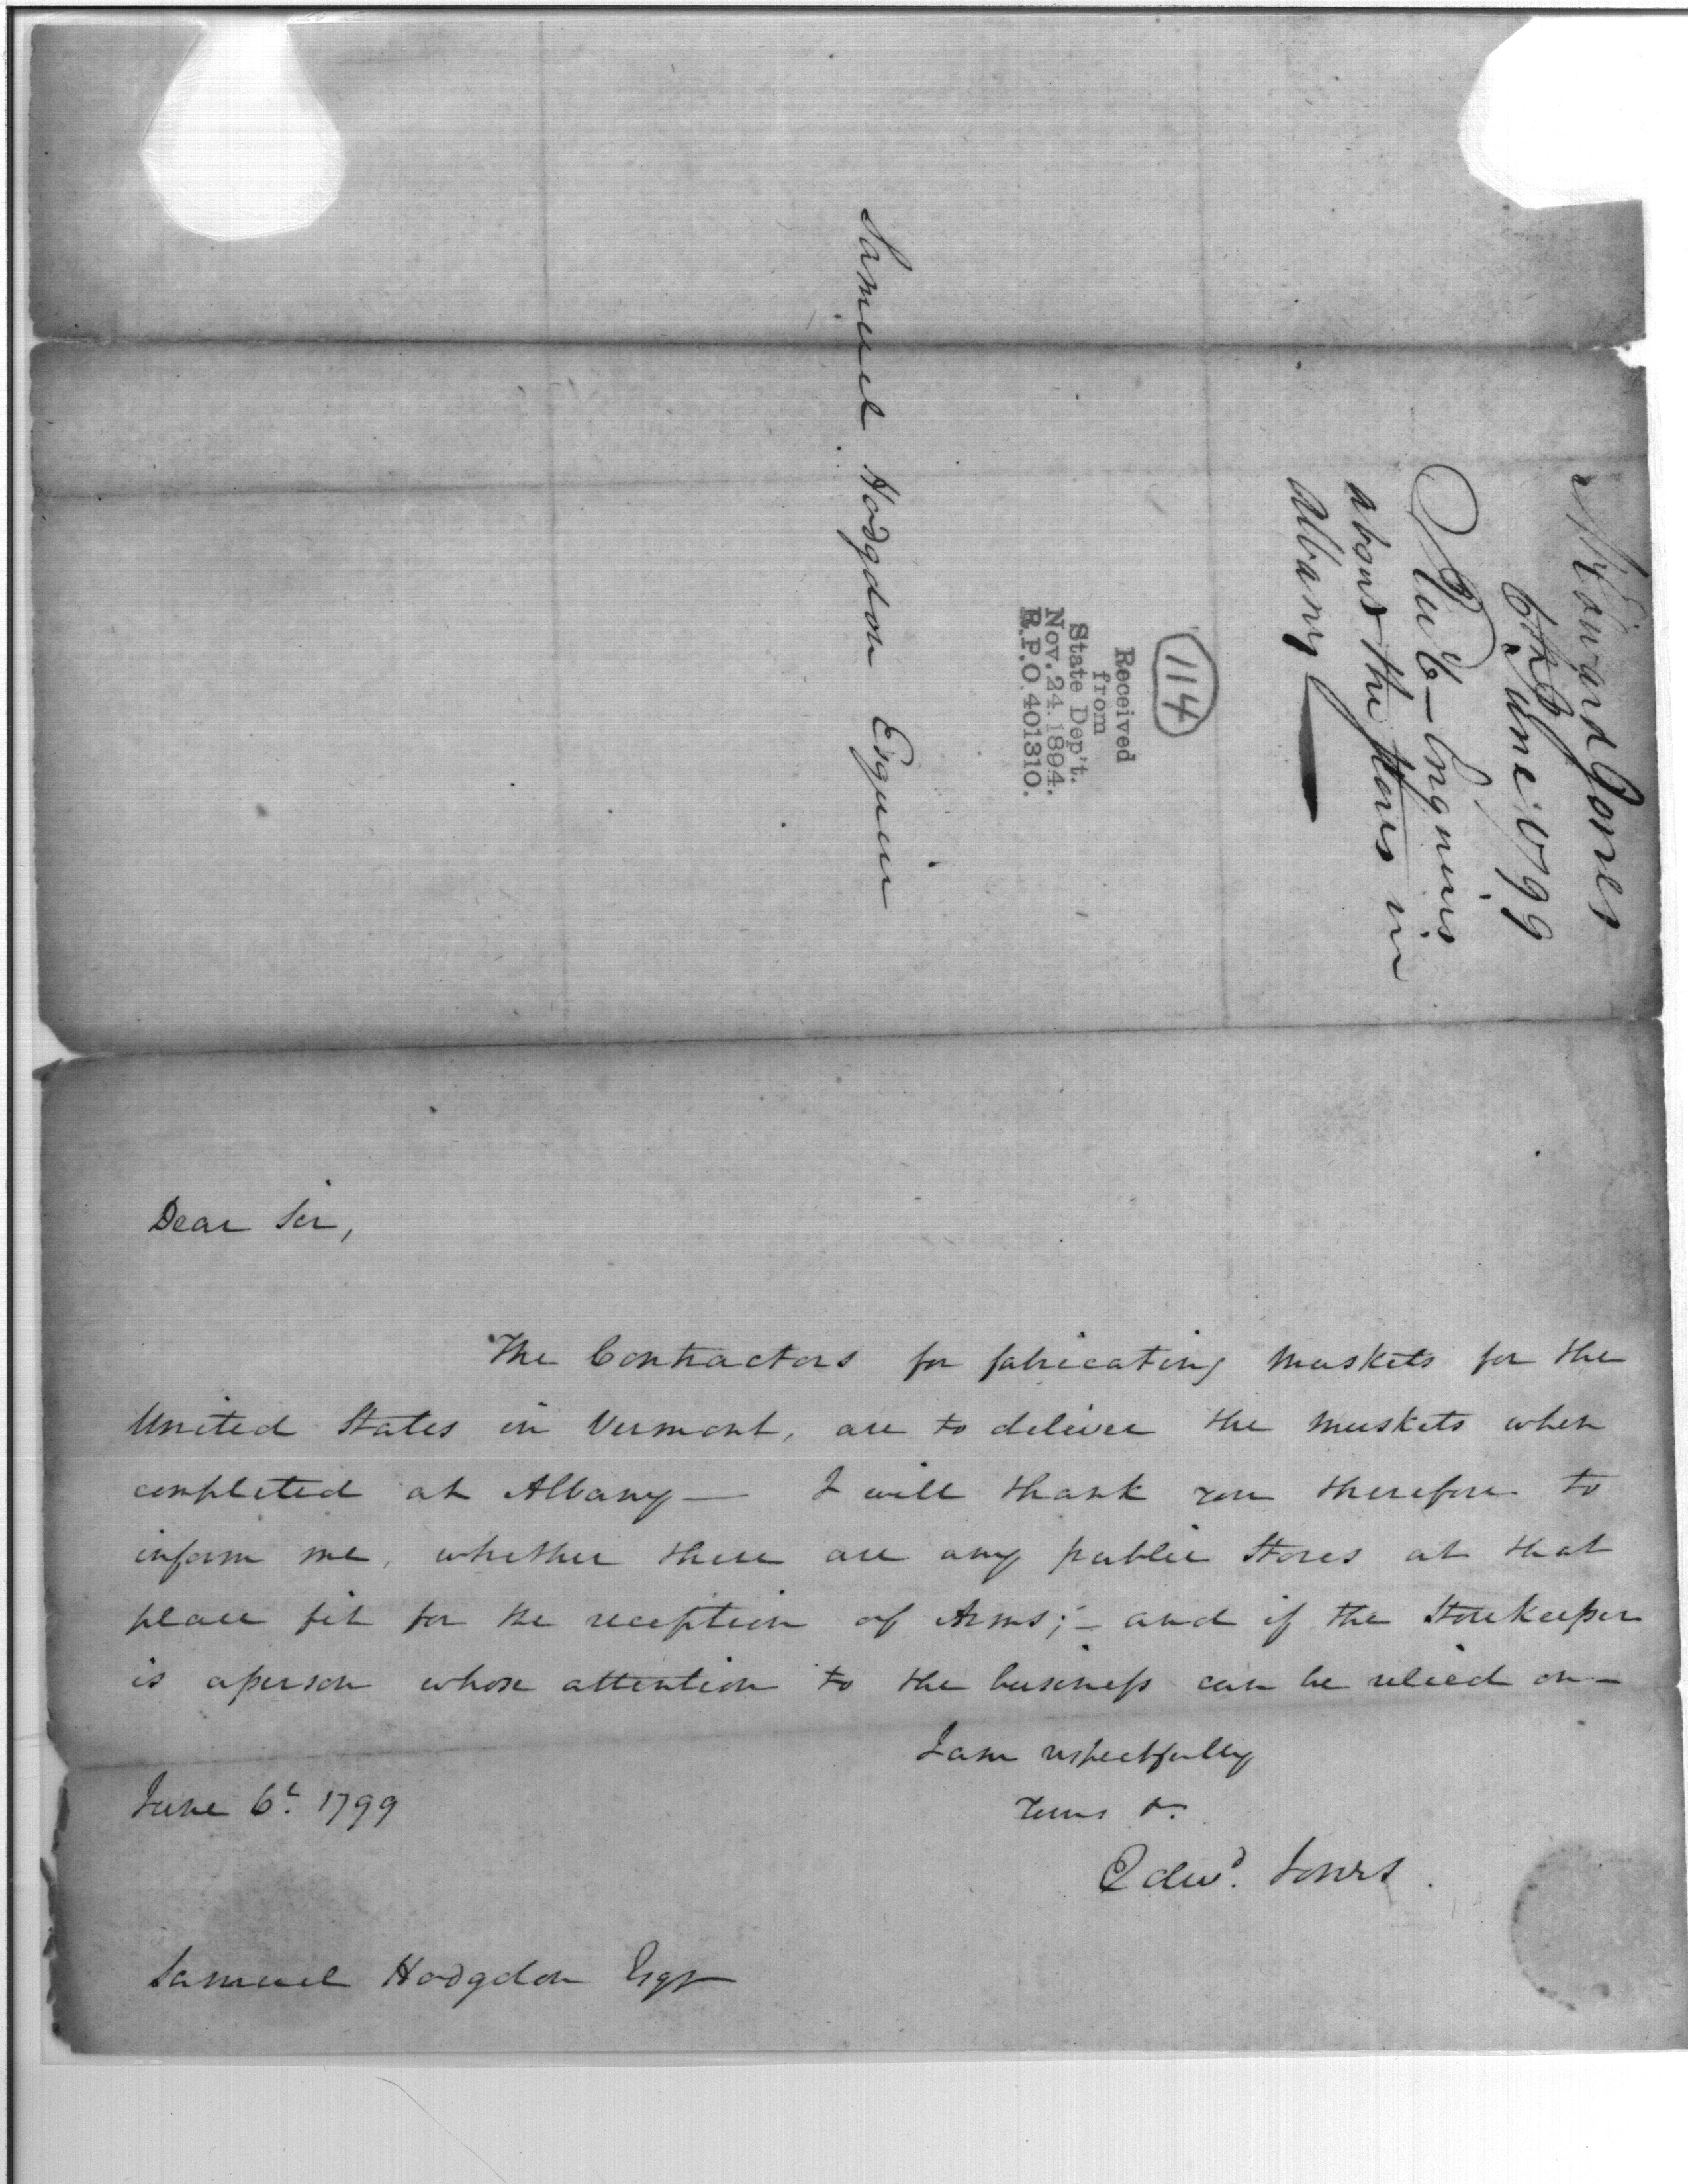 Samuel Hodgdon Esquire
114
Received
from
State Dep't.
Nov. 24. 1894.
R.P.O. 401310.
Edward Jones
6th June 1799
Enquires
about the Stores in
Albany
Dear Sir,
The Contractors for fabricating Muskets for the
United States in Vermont, are to deliver the Muskets when
completed at Albany— I will thank you therefore to
inform me, whether there are any public Stores at that
place fit for the reception of Arms;– and if the Storekeeper
is a person whose attention to the business can be relied on–
I am respectfully
Yours &.
Edwd. Jones.
June 6t. 1799
Samuel Hodgdon Esqr